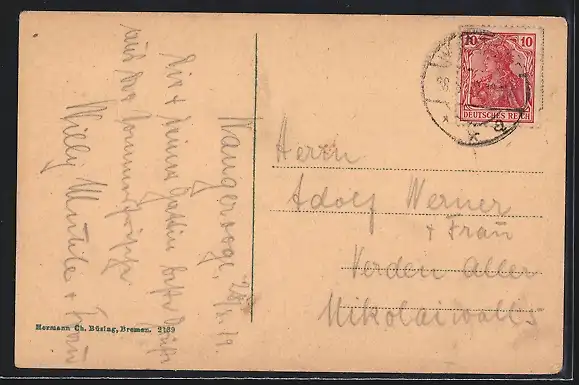 Wangerooge,
Dir + Deiner Gattin beste Grüße
aus der Sommerfrische
Willy + Frau
10 10
DEUTSCHES REICH
a
Herrn
Adolf Werner
+ Frau
Verden Aller
Nikolaiwall
Hermann Ch. Büsing, Bremen. 2139